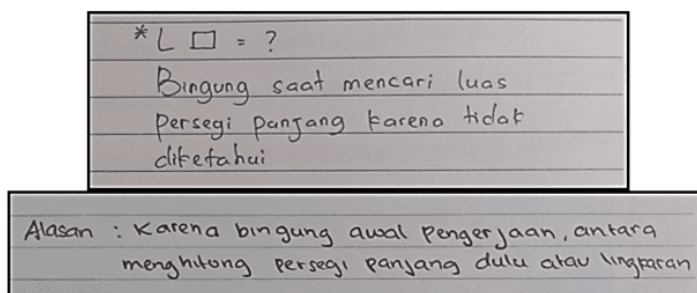 * L □ = ?
Bingung saat mencari luas
persegi panjang karena tidak
diketahui
Alasan : Karena bingung awal pengerjaan, antara
menghitong persegi panjang dulu atau lingkaran